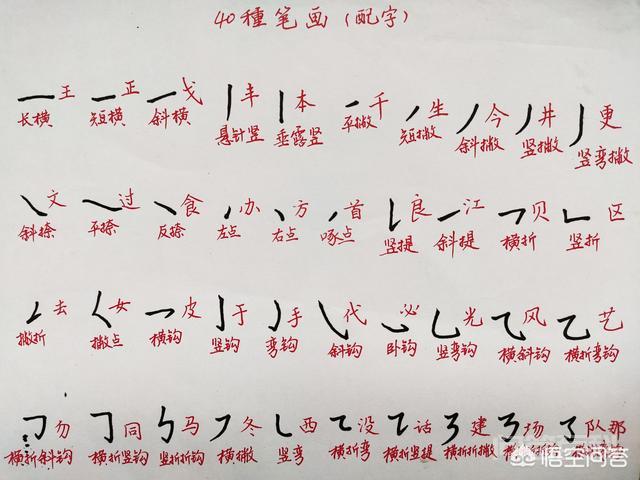 40種笔画(配字)
王 正 戈 丰 本 千 生 今 井 更
长横 短横 斜横 悬针竖 垂露竖 平撇 短撇 斜撇 竖撇 竖弯撇
文 过 食 办 方 首 良 江 贝 区
斜捺 平捺 反捺 左点 右点 啄点 竖提 斜提 横折 竖折
去 女 皮 于 手 代 必 光 风 艺
撇折 撇点 横钩 竖钩 弯钩 斜钩 卧钩 竖弯钩 横斜钩 横折弯钩
勿 同 马 冬 西 没 话 建 场 队 那
横折斜钩 横折竖钩 竖折折钩 横撇 竖弯 横折弯 横折竖提 横折折撇
悟空问答